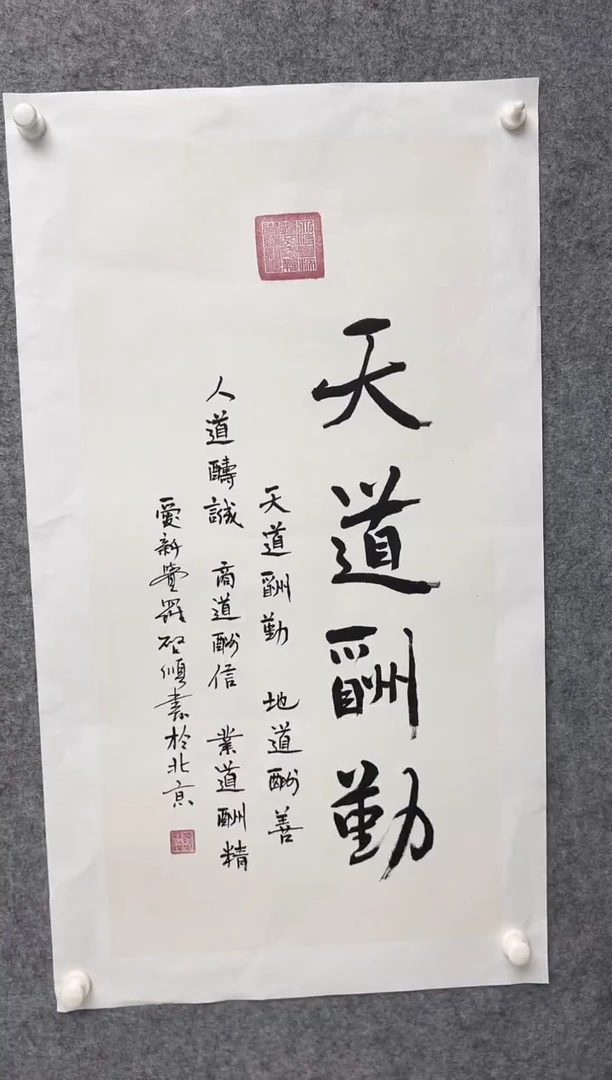 天道酬勤
天道酬勤 地道酬善
人道酬誠 商道酬信 業道酬精
愛新覺羅啓順書於北京